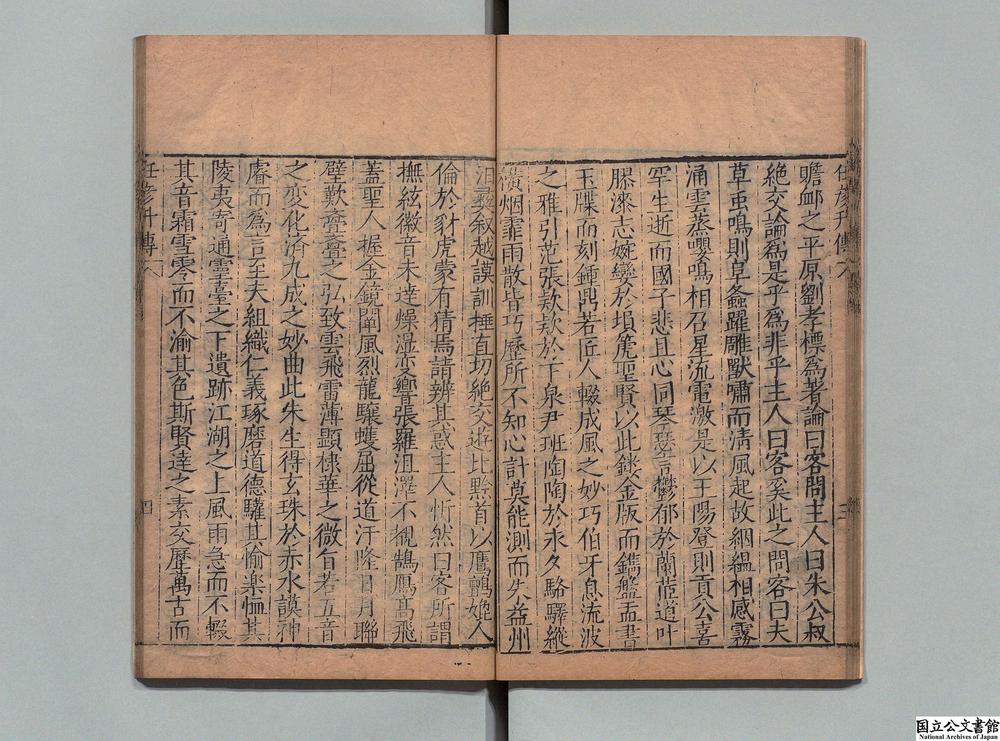 任彥升傳
三
瞻邺之平原劉孝標爲著論曰客問主人曰朱公叔
絶交論爲是乎爲非乎主人曰客奚此之問客曰夫
草虫鳴則阜螽躍雕獸嘯而清風起故絪緼相感霧
涌雲蒸嚶鳴相召星流電激是以王陽登則貢公喜
罕生逝而國子悲且心同琴瑟言鬱郁於蘭茝道叶
膠漆志婉孌於塤篪聖賢以此鏤金版而鐫盤盂書
玉牒而刻鍾鼎若匠人輟成風之妙巧伯牙息流波
之雅引范張款款於下泉尹班陶陶於永夕駱驛縱
横烟霏雨散皆巧歷所不知心計莫能測而朱益州
汨彝叙越謨訓捶直切絶交逰比黔首以鷹鸇媲人
倫於豺虎蒙有猜焉請辨其惑主人忻然曰客所謂
撫絃徽音未達燥濕变響張羅沮澤不覩鵠鳳髙飛
蓋聖人握金鏡闡風烈龍驤蠖屈從道汙隆日月聯
璧歎亹亹之弘致雲飛雷薄顯棣華之微旨若五音
之变化済九成之妙曲此朱生得玄珠於赤水謨神
睿而爲言至夫組織仁義琢磨道德驩其愉楽恤其
陵夷寄通靈臺之下遺跡江湖之上風雨急而不輟
其音霜雪零而不渝其色斯賢達之素交歷萬古而
任彥升傳
四
国立公文書館
National Archives of Japan